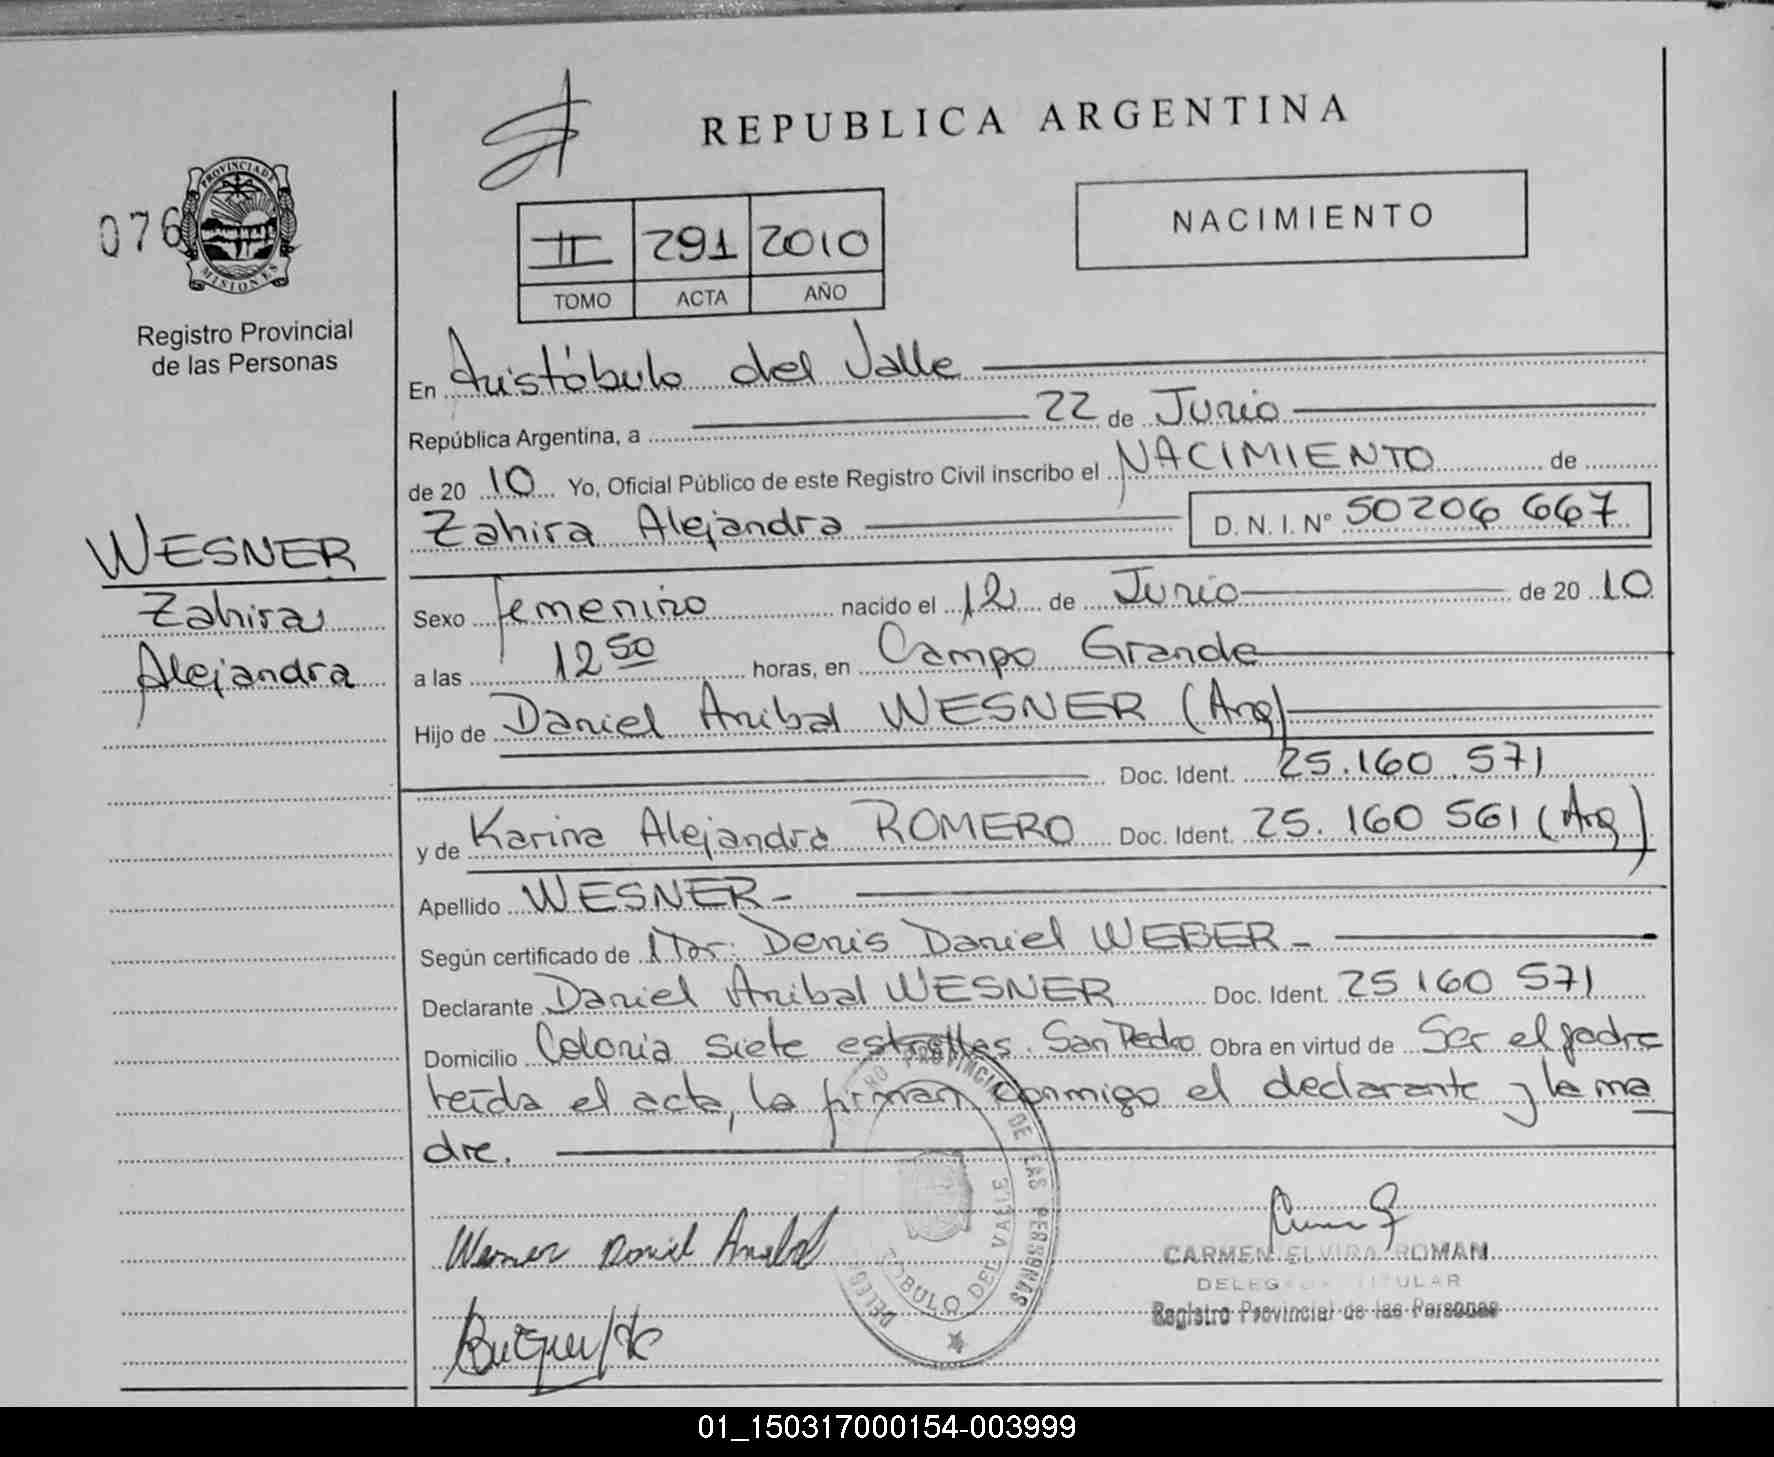 REPUBLICA ARGENTINA
076
PROVINCIA DE
MISIONES
Registro Provincial
de las Personas
II 291 2010
TOMO ACTA AÑO
NACIMIENTO
En Aristóbulo del Valle
República Argentina, a 22 de Junio
de 20 10 Yo, Oficial Público de este Registro Civil inscribo el NACIMIENTO de
Zahira Alejandra D.N.I. Nº 50206 667
WESNER
Zahira
Alejandra
Sexo femenino nacido el 12 de Junio de 20 10
a las 12 50 horas, en Campo Grande
Hijo de Daniel Anibal WESNER (Arg)
Doc. Ident. 25.160.571
y de Karina Alejandra ROMERO Doc. Ident. 25.160 561 (Arg)
Apellido WESNER-
Según certificado de Denis Daniel WEBER-
Declarante Daniel Anibal WESNER Doc. Ident. 25 160 571
Domicilio Colonia siete estrellas. San Pedro Obra en virtud de Ser el padre
leída el acta, la firman conmigo el declarante y la ma
dre.
Wesner Daniel Anibal
CARMEN ELVIRA ROMAN
TITULAR
Registro Provincial de las Personas
PROVINCIAL DE LAS PERSONAS
DEL VALLE
01_150317000154-003999